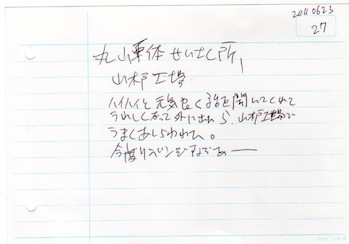 20110623
27
丸山車体せいさく所、
山本工場
ハイハイと元気良く話を聞いてくれて
うれしくなって外に出たら、山本工場で
うまくあしらわれた。
今度リベンジするぞぁー